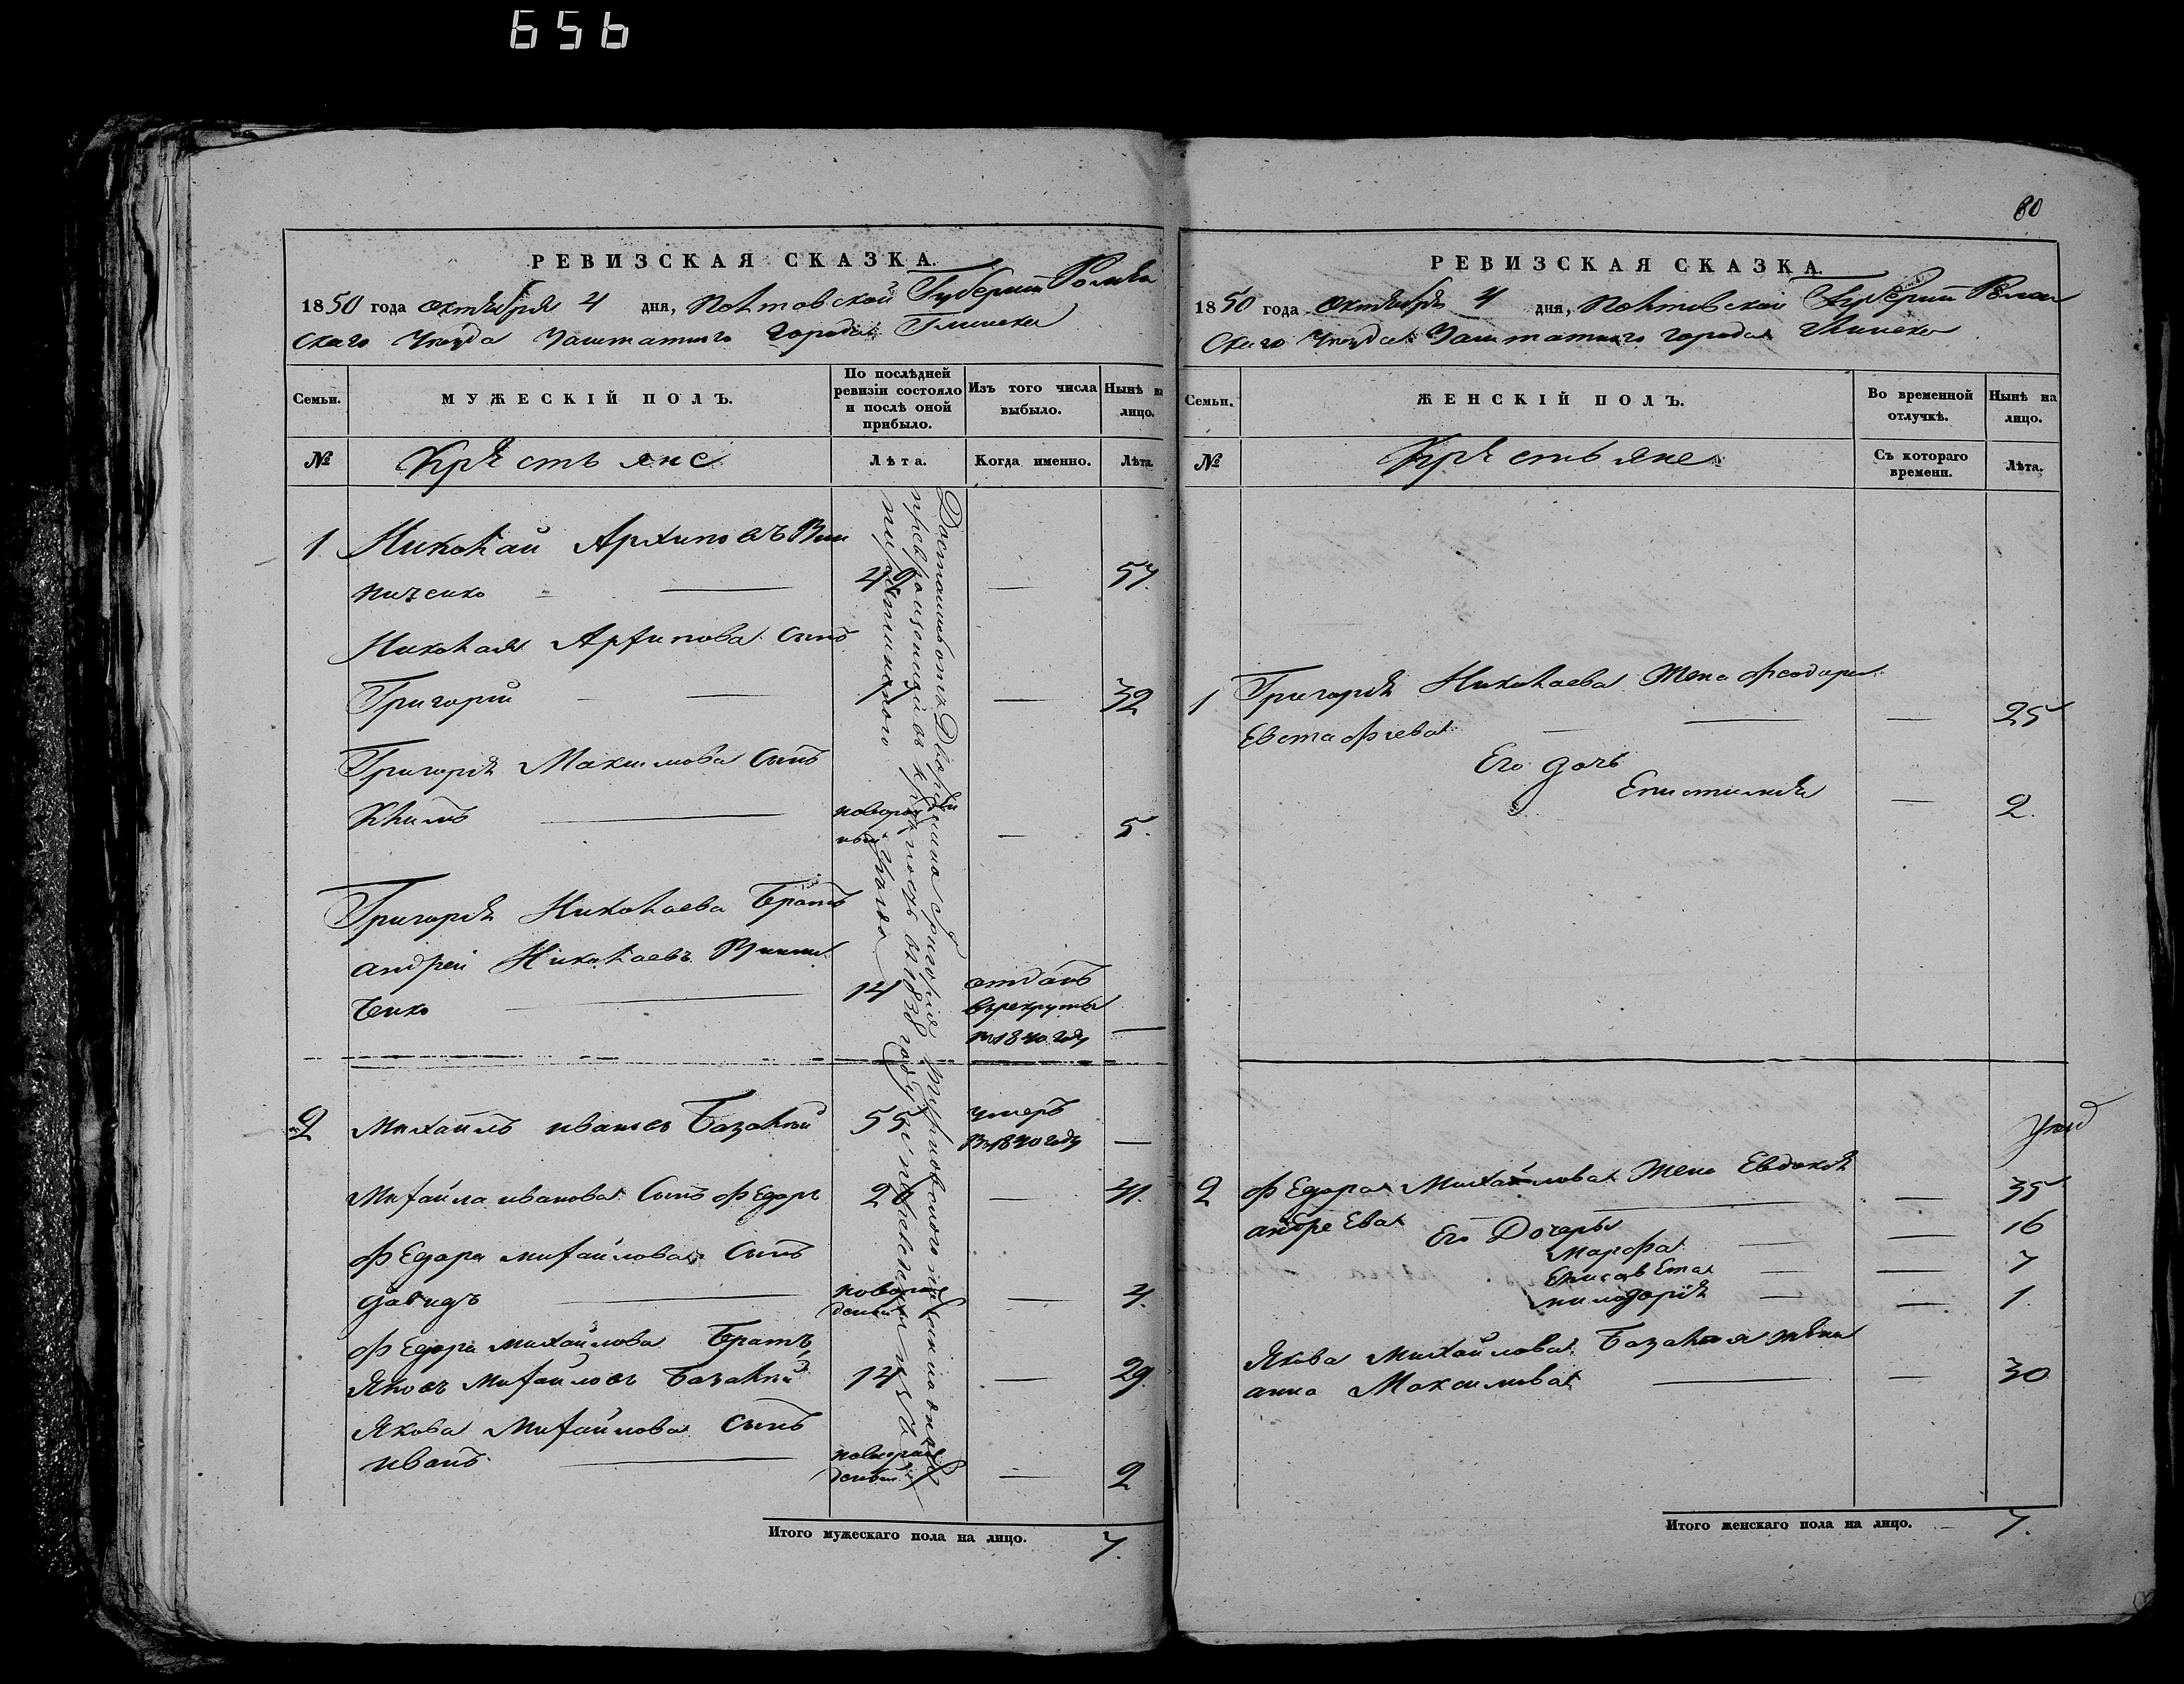 656
РЕВИЗСКАЯ СКАЗКА.
1850 года октября 4 дня, Полтавской Губерніи Ромен
скаго Уезда Заштатного города Глинска
Семьи.
МУЖЕСКІЙ ПОЛЪ.
По послѣдней ревизіи состояло и послѣ оной прибыло.
Изъ того числа выбыло.
Нынѣ на лицо.
№
Крестьяне
Лѣта.
Когда именно.
Лѣта.
1 Николай Архиповъ Вин
ниченко 42 — 57.
Николая Архипова Сынъ
Григорій — 32
Григорія Максимова Сынъ
Климъ — 5.
Григорія Николаева Братъ
андрей Николаевъ Винни
ченко 14 отданъ
в рекруты
в 1840 году —
2 Михаилъ ивановъ Базалий 55 умеръ
в 1840 году —
Михаила иванова Сынъ федоръ — 41.
федора михайлова Сынъ
давидъ — 4.
федора михайлова Братъ
Яковъ михайловъ Базалий 14 — 29.
Якова Михайлова Сынъ
иванъ — 2
Итого мужескаго пола на лицо. 7.
80
РЕВИЗСКАЯ СКАЗКА.
1850 года октября 4 дня, Полтавской Губерніи Ромен
скаго Уезда Заштатного города Глинска
Семьи.
ЖЕНСКІЙ ПОЛЪ.
Во временной отлучкѣ.
Нынѣ на лицо.
№
Крестьяне
Съ котораго времени.
Лѣта.
1 Григорія Николаева Жена феодора
Евстафиева — 25
Его дочь
Епистимия — 2.
2 федора Михайлова Жена Евдокия
андреева — 35
Его Дочеры
марфа — 16
Елисавета — 7
милодория — 1.
Якова Михайлова Базалия жена
анна Максимова — 30
Итого женскаго пола на лицо. 7.